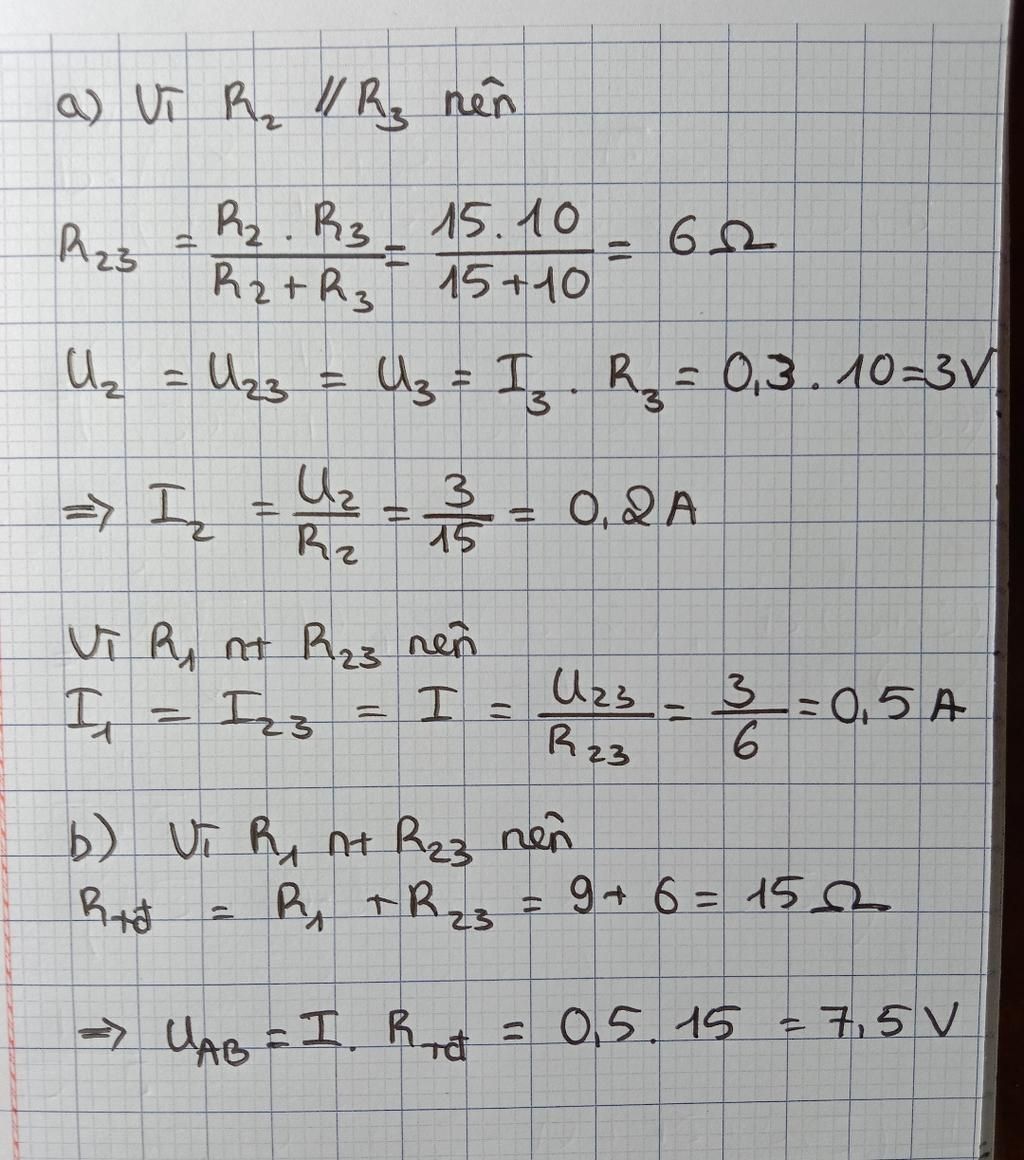 a) Vì R₂ // R₃ nên
R₂₃ = R₂ . R₃ / R₂ + R₃ = 15 . 10 / 15 + 10 = 6 Ω
U₂ = U₂₃ = U₃ = I₃ . R₃ = 0,3 . 10 = 3V
⇒ I₂ = U₂ / R₂ = 3 / 15 = 0,2 A
Vì R₁ nt R₂₃ nên
I₁ = I₂₃ = I = U₂₃ / R₂₃ = 3 / 6 = 0,5 A
b) Vì R₁ nt R₂₃ nên
Rtđ = R₁ + R₂₃ = 9 + 6 = 15 Ω
⇒ UAB = I . Rtđ = 0,5 . 15 = 7,5 V